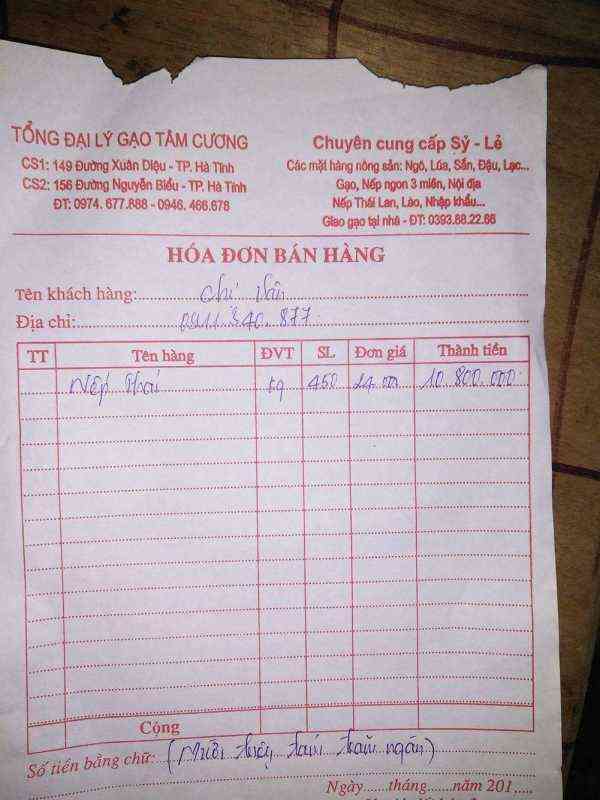 TỔNG ĐẠI LÝ GẠO TÂM CƯƠNG
CS1: 149 Đường Xuân Diệu - TP. Hà Tĩnh
CS2: 156 Đường Nguyễn Biểu - TP. Hà Tĩnh
ĐT: 0974. 677.888 - 0946. 466.678
Chuyên cung cấp Sỷ - Lẻ
Các mặt hàng nông sản: Ngô, Lúa, Sắn, Đậu, Lạc...
Gạo, Nếp ngon 3 miền, Nội địa
Nếp Thái Lan, Lào, Nhập khẩu...
Giao gạo tại nhà - ĐT: 0393.88.22.66
HÓA ĐƠN BÁN HÀNG
Tên khách hàng: Chị Vân
Địa chỉ: 0911.540.877
TT Tên hàng ĐVT SL Đơn giá Thành tiền
Nếp Thái kg 450 24.000 10.800.000
Cộng
Số tiền bằng chữ: (Mười triệu tám trăm ngàn)
Ngày......tháng......năm 201.....